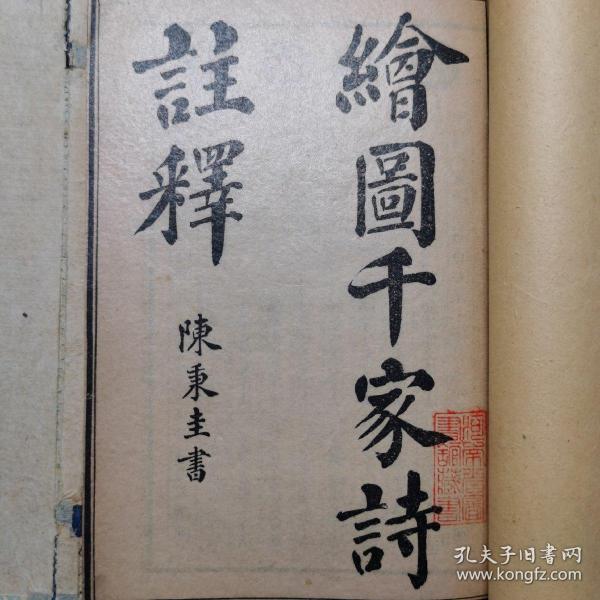 繪圖千家詩
註釋
陳秉圭書
孔夫子旧书网
www.kongfz.com